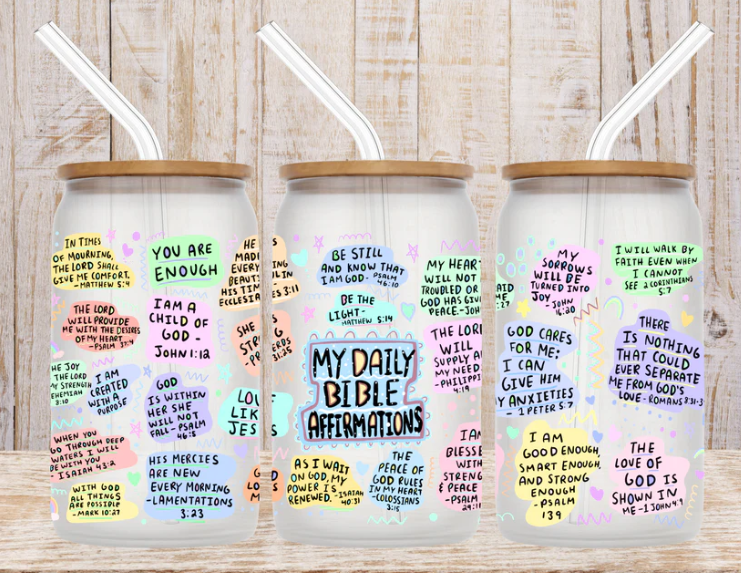 IN TIMES
OF MOURNING,
THE LORD SHALL
GIVE ME COMFORT.
- MATTHEW 5:4
YOU ARE
ENOUGH
THE LORD
WILL PROVIDE
ME WITH THE DESIRES
OF MY HEART
- PSALM 37:4
I AM A
CHILD OF
GOD -
JOHN 1:12
HE JOY
THE LORD
MY STRENGTH
EHEMIAH
8:10
I AM
CREATED
WITH A
PURPOSE
GOD
IS WITHIN
HER SHE
WILL NOT
FALL - PSALM
46:5
WHEN YOU
GO THROUGH DEEP
WATERS I WILL
BE WITH YOU
ISAIAH 43:2
HIS MERCIES
ARE NEW
EVERY MORNING
- LAMENTATIONS
3:23
WITH GOD
ALL THINGS
ARE POSSIBLE
- MARK 10:27
HE
MADE
EVERY
BEAUTI
HIS TIME
ECCLESIA
SHE
STRO
LOV
LIK
JES
GOD
LO
3:11
31:25
BE STILL
AND KNOW THAT
I AM GOD - PSALM
46:10
BE THE
LIGHT -
MATTHEW 5:14
MY DAILY
BIBLE
AFFIRMATIONS
AS I WAIT
ON GOD, MY
POWER IS
RENEWED. - ISAIAH
40:31
THE
PEACE OF
GOD RULES
IN MY HEART
- COLOSSIANS
3:15
MY HEART
WILL NOT
TROUBLED OR
GOD HAS GIV
PEACE - JOH
THE LORD
WILL
SUPPLY A
MY NEED
- PHILIPPI
4:19
I AM
BLESSE
WITH
STRENG
& PEACE
- PSALM
29:11
MY
SORROWS
WILL BE
TURNED INTO
JOY - JOHN
16:20
I WILL WALK BY
FAITH EVEN WHEN
I CANNOT
SEE 2 CORINTHIANS
5:7
GOD CARES
FOR ME:
I CAN
GIVE HIM
MY ANXIETIES
- 1 PETER 5:7
THERE
IS NOTHING
THAT COULD
EVER SEPARATE
ME FROM GOD'S
LOVE - ROMANS 8:31-3
I AM
GOOD ENOUGH,
SMART ENOUGH,
AND STRONG
ENOUGH
- PSALM
139
THE
LOVE OF
GOD IS
SHOWN IN
ME - 1 JOHN 4:9